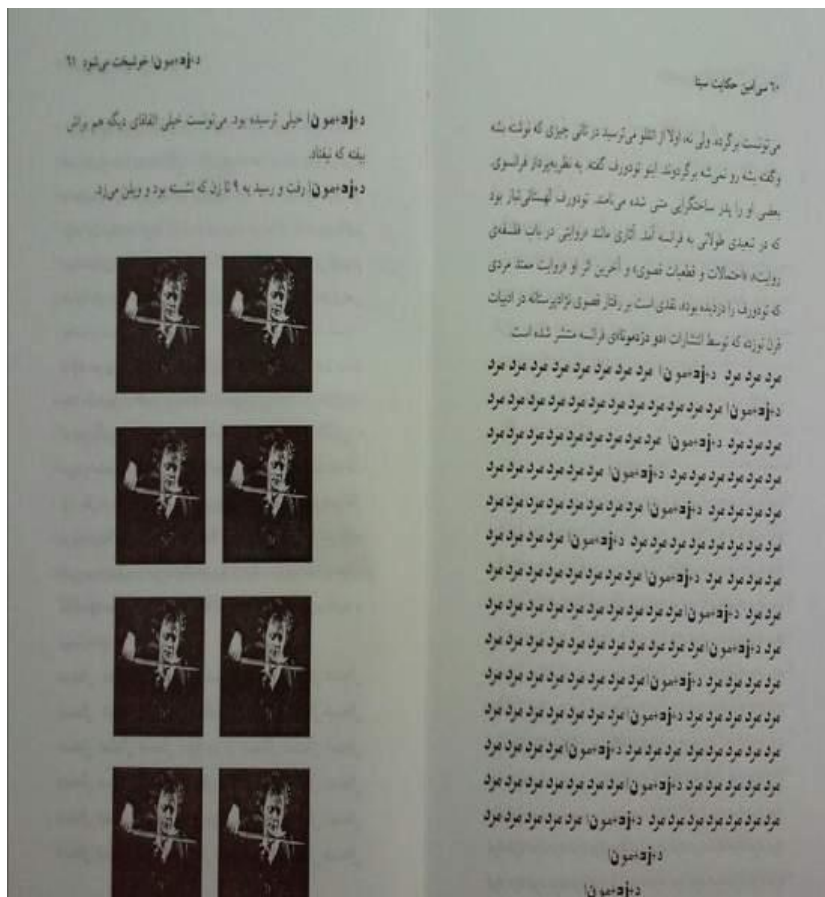 ۶۰ سی‌امین حکایت سینا
می‌تونست برگرده. ولی نه. اولا از اتللو می‌ترسید در ثانی چیزی که نوشته بشه
و گفته بشه رو نمی‌شه برگردوند. اینو تودورف گفته. یه نظریه‌پرداز فرانسوی.
بعضی او را پدر ساختگرایی متنی شده می‌نامند. تودورف لهستانی‌تبار بود
که در تبعیدی طولانی به فرانسه آمد. آثاری مانند «روایتی در باب فلسفه‌ی
روایت»، «احتمالات و قطعیات قصوی» و آخرین اثر او «روایت ممتد مردی
که تودورف را دزدیده بود»، نقدی است بر رفتار قصوی نژادپرستانه در ادبیات
قرن نوزده که توسط انتشارات «دو دزدمونا»ی فرانسه منتشر شده است.
مرد مرد مرد د+زد+مو ن| مرد مرد مرد مرد مرد مرد مرد مرد
د+زد+مو ن| مرد مرد مرد مرد مرد مرد مرد مرد مرد مرد مرد
مرد مرد مرد د+زد+مو ن| مرد مرد مرد مرد مرد مرد مرد مرد
مرد مرد مرد مرد مرد د+زد+مو ن| مرد مرد مرد مرد مرد مرد
مرد مرد مرد مرد د+زد+مو ن| مرد مرد مرد مرد مرد مرد مرد
مرد مرد مرد مرد مرد مرد مرد د+زد+مو ن| مرد مرد مرد مرد
مرد مرد مرد مرد د+زد+مو ن| مرد مرد مرد مرد مرد مرد مرد
مرد مرد د+زد+مو ن| مرد مرد مرد مرد مرد مرد مرد مرد مرد
مرد د+زد+مو ن| مرد مرد مرد مرد مرد مرد مرد مرد مرد مرد
مرد مرد مرد مرد د+زد+مو ن| مرد مرد مرد مرد مرد مرد مرد
مرد مرد مرد مرد مرد د+زد+مو ن| مرد مرد مرد مرد مرد مرد
مرد مرد مرد مرد مرد مرد مرد د+زد+مو ن| مرد مرد مرد مرد
مرد مرد مرد مرد مرد د+زد+مو ن| مرد مرد مرد مرد مرد مرد
مرد مرد مرد مرد مرد مرد د+زد+مو ن| مرد مرد مرد مرد مرد
د+زد+مو ن|
د+زد+مو ن|
د+زد+مو ن| خوشبخت می‌شود ۶۱
د+زد+مو ن| خیلی ترسیده بود. می‌تونست خیلی اتفاقای دیگه هم براش
بیفته که نیفتاد.
د+زد+مو ن| رفت و رسید به ۹ تا زن که نشسته بود و ویلن می‌زد.